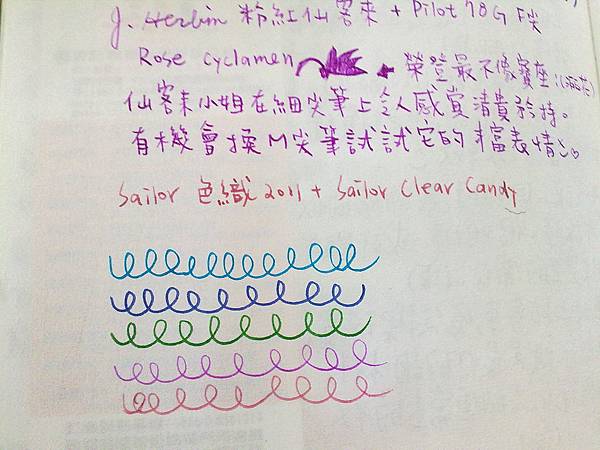 J. Herbin 粉紅仙客來 + Pilot 78G F尖
Rose cyclamen 榮登最不像寶座
仙客來小姐在細尖筆上令人感覺清貴矜持。
有機會換M尖筆試試它的檔表情
Sailor 色織 2011 + Sailor Clear Candy